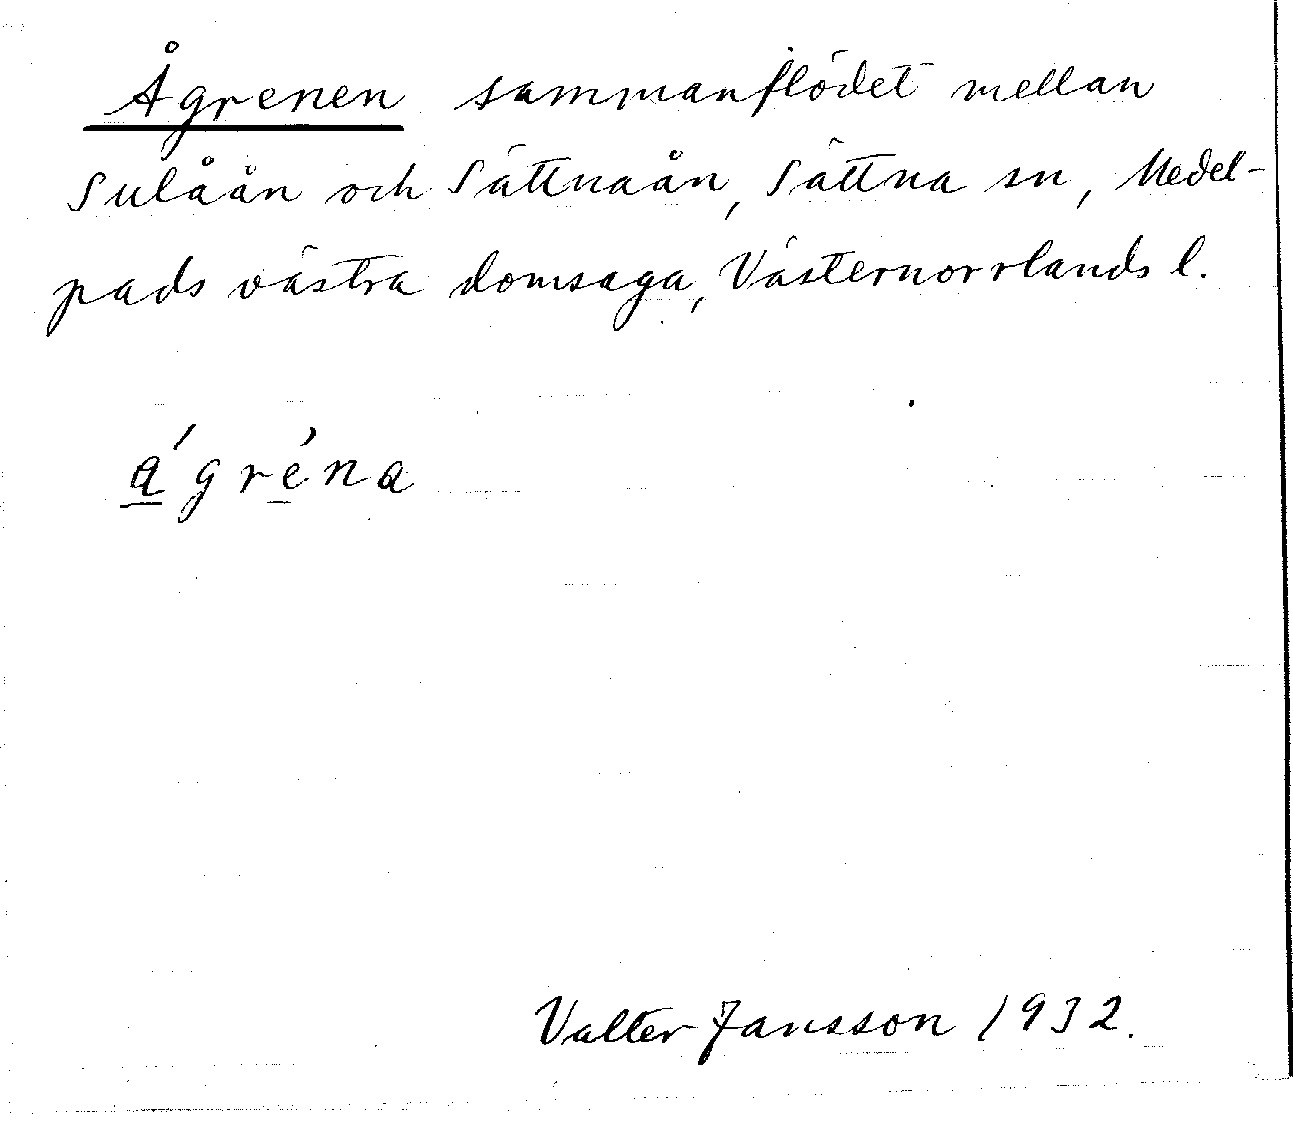 Ågrenen sammanflödet mellan
Sulåån och Sättnaån, Sättna sn, Medel-
pads västra domsaga, Västernorrlands l.
a̲´gre̲´na
Valter Jansson 1932.